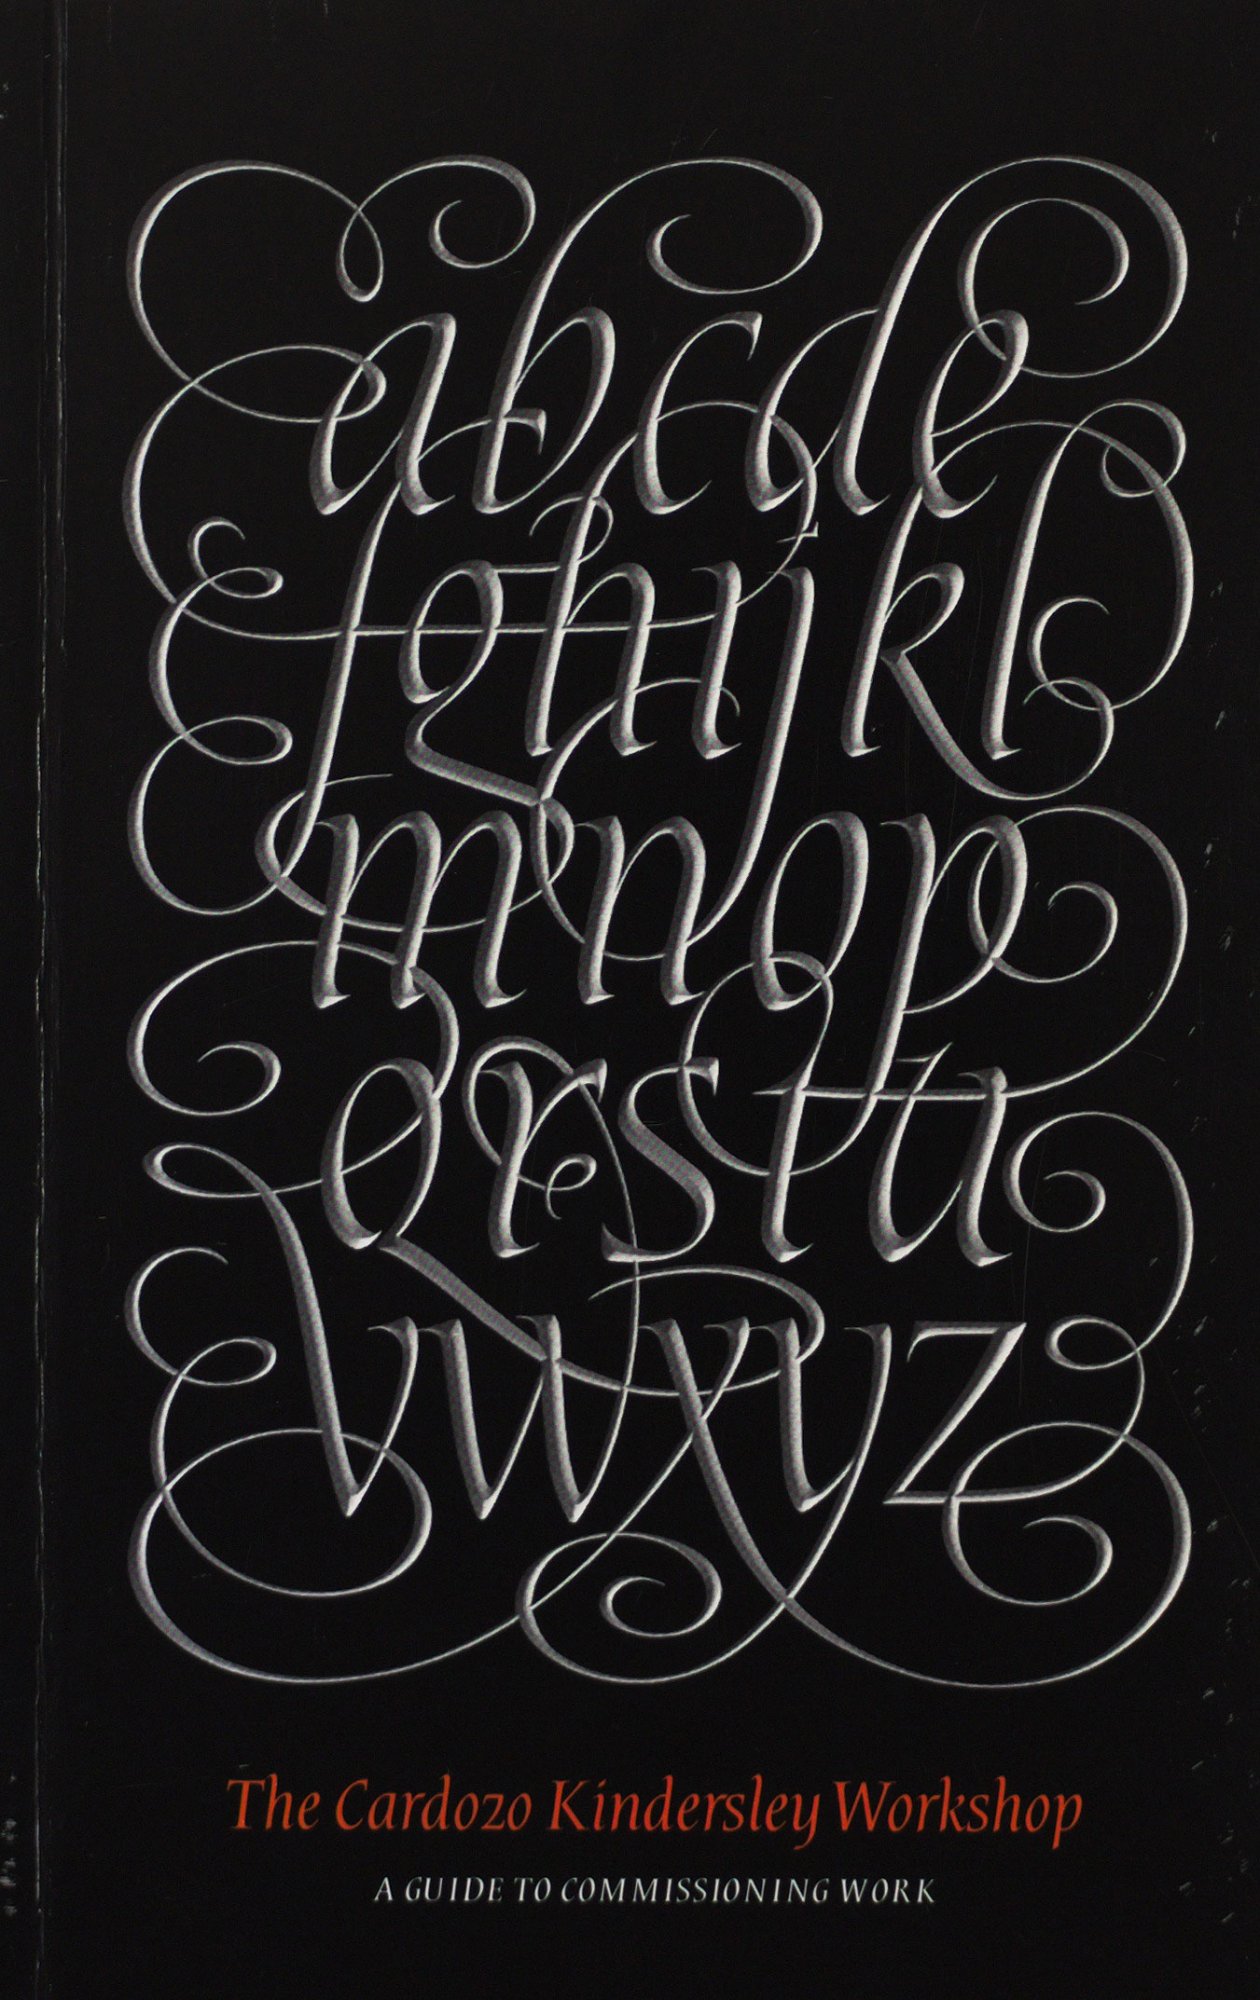 abcde
fghijkl
mnop
qrstu
vwxyz
The Cardozo Kindersley Workshop
A GUIDE TO COMMISSIONING WORK